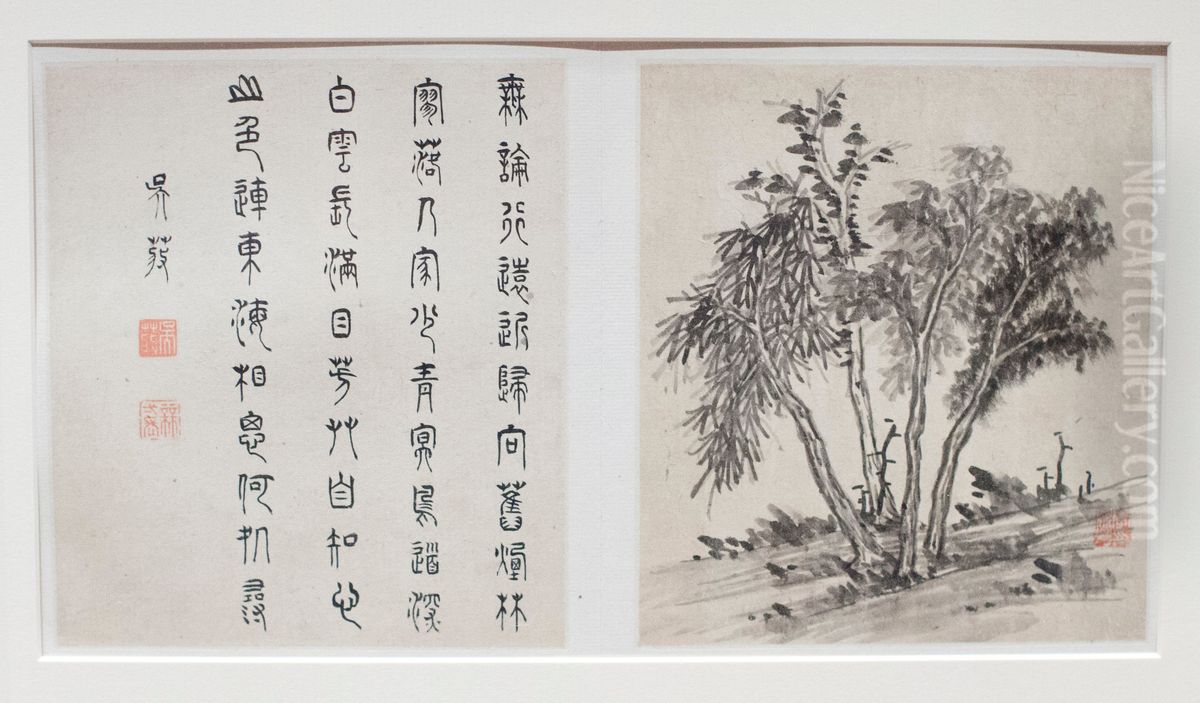 無論行遠近歸向舊煙林
寥落人家少青冥鳥道深
白雲長滿目芳艸自知心
山色連東海相思何処尋
吳發
吳發
NiceArtGallery.com